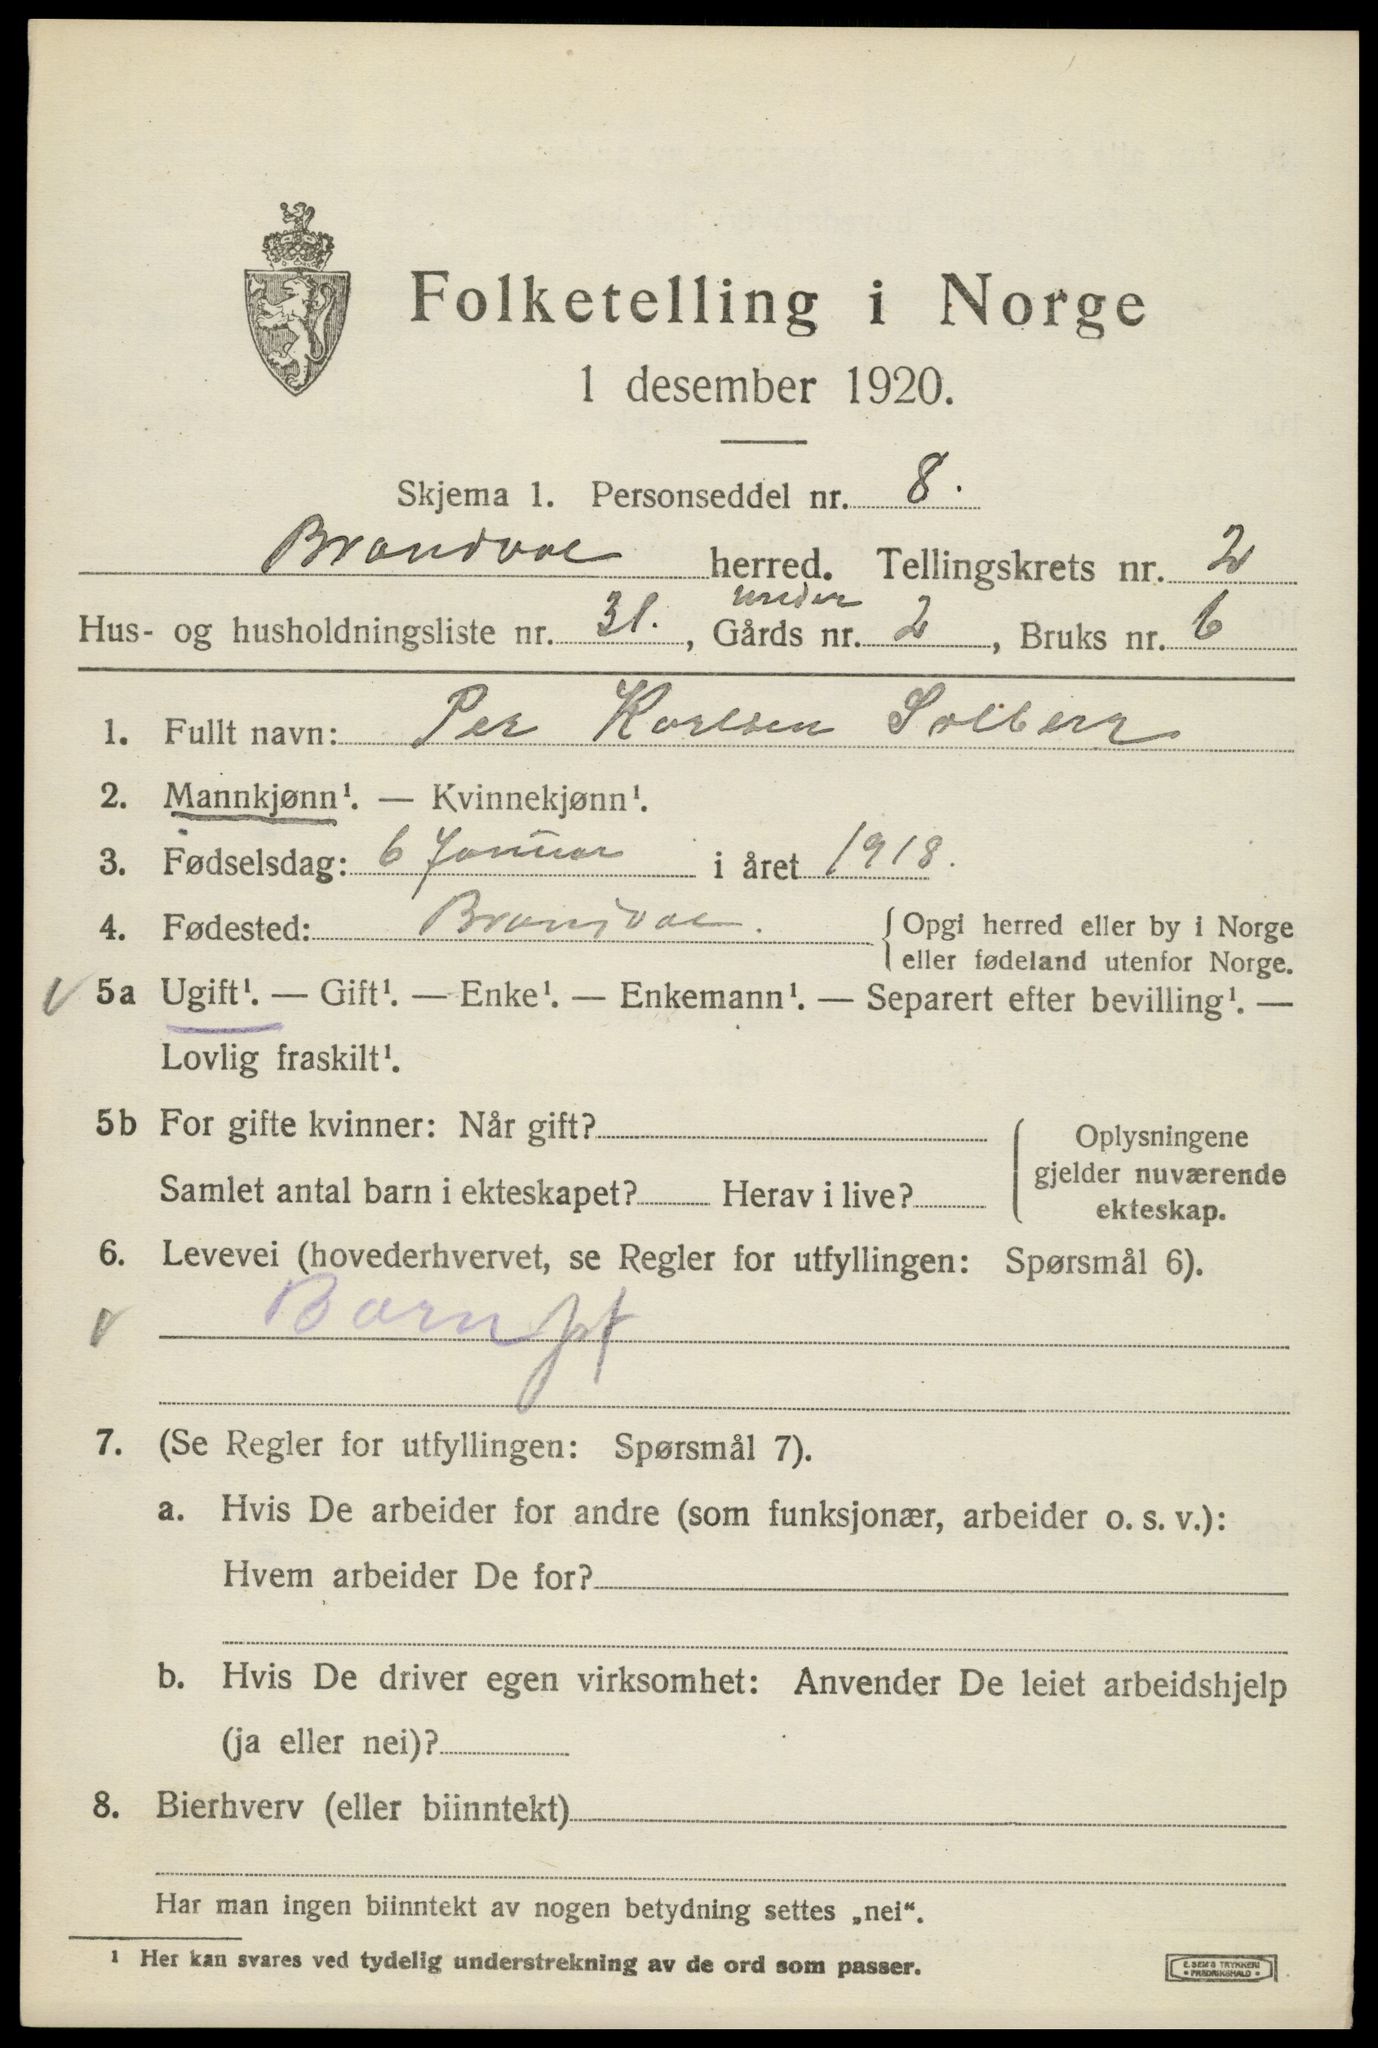 Folketelling i Norge
1 desember 1920.
Skjema 1. Personseddel nr. 8.
Brandval herred. Tellingskrets nr. 2
under
Hus- og husholdningsliste nr. 31., Gårds nr. 2, Bruks nr. 6
1. Fullt navn: Per Karlsen Solberg
2. Mannkjønn¹. — Kvinnekjønn¹.
3. Fødselsdag: 6 Januar i året 1918.
4. Fødested: Brandval. { Opgi herred eller by i Norge
eller fødeland utenfor Norge.
5a Ugift¹. — Gift¹. — Enke¹. — Enkemann¹. — Separert efter bevilling¹. —
Lovlig fraskilt¹.
5b For gifte kvinner: Når gift?
Samlet antal barn i ekteskapet? Herav i live?
Oplysningene
gjelder nuværende
ekteskap.
6. Levevei (hovederhvervet, se Regler for utfyllingen: Spørsmål 6).
Barn
7. (Se Regler for utfyllingen: Spørsmål 7).
a. Hvis De arbeider for andre (som funksjonær, arbeider o. s. v.):
Hvem arbeider De for?
b. Hvis De driver egen virksomhet: Anvender De leiet arbeidshjelp
(ja eller nei)?
8. Bierhverv (eller biinntekt)
Har man ingen biinntekt av nogen betydning settes „nei“.
¹ Her kan svares ved tydelig understrekning av de ord som passer.
E. SEM'S TRYKKERI
• FREDRIKSHALD •